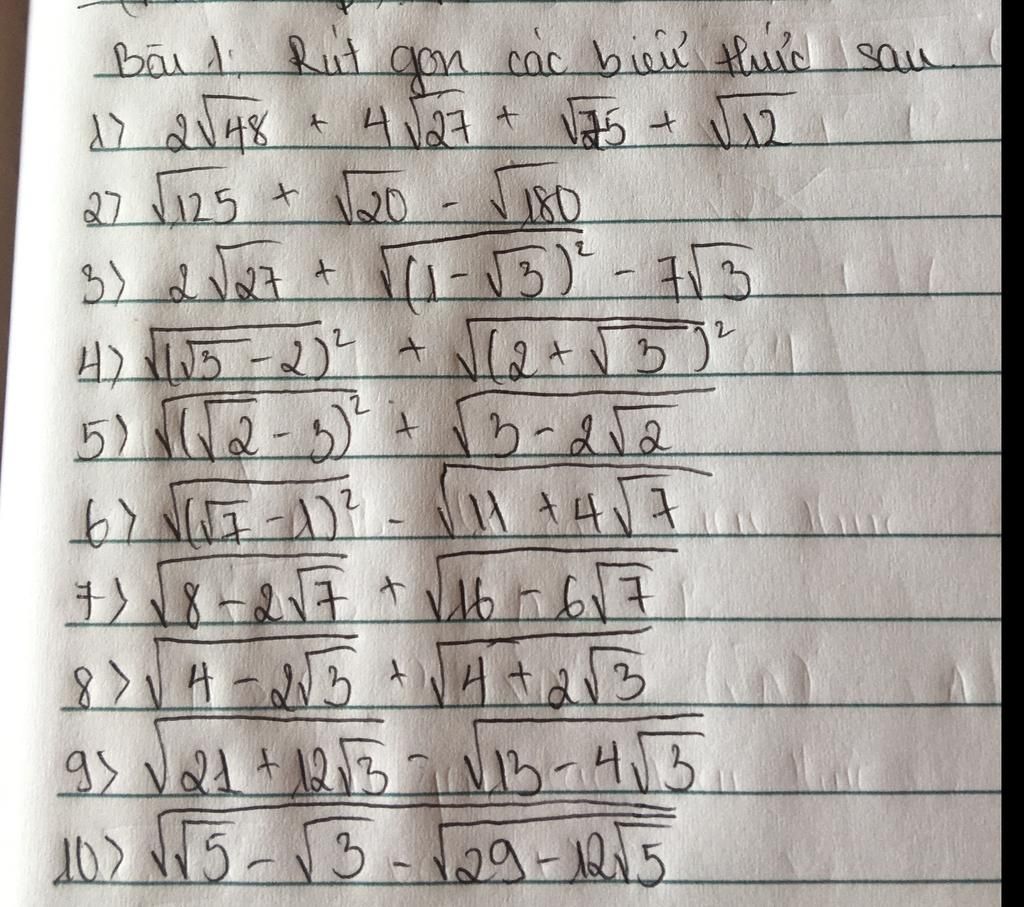 Bài 1: Rút gọn các biểu thức sau
1) 2√48 + 4√27 + √75 + √12
2) √125 + √20 - √180
3) 2√27 + √(1-√3)² - 7√3
4) √(√3-2)² + √(2+√3)²
5) √(√2-3)² + √3-2√2
6) √(√7-1)² - √11+4√7
7) √8-2√7 + √16-6√7
8) √4-2√3 + √4+2√3
9) √21+12√3 - √13-4√3
10) √√5-√3-√29-12√5